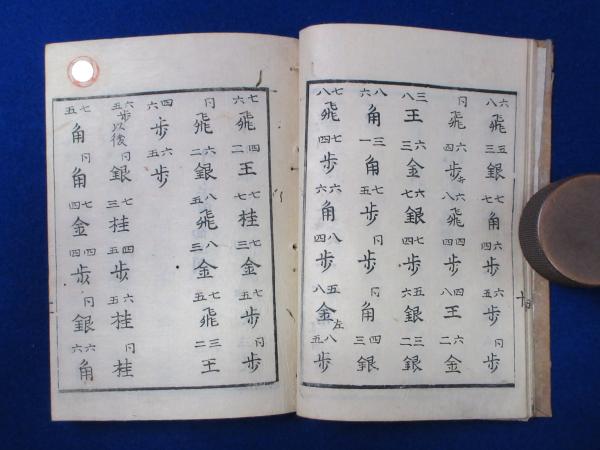 六八飛五三銀七七角六四歩六五歩同歩
同飛六四歩六八飛四四歩四八王六二金
三八王六三金六七銀七四歩五六銀三二銀
八六角三一角七五歩同歩同角四三銀
七八飛七四歩六六角八四歩五八金左八五歩
七六飛四二王七七桂七三金七五歩同歩
同飛六二銀八五飛八三金七五飛三二王
四六歩六五歩
六五歩以後同銀七三桂四五歩六五桂同桂
七五角同角七四金四四歩同銀六六角